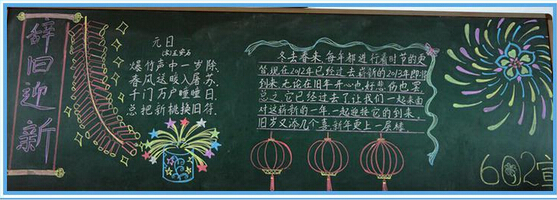 辞旧迎新
元日
(宋)王安石
爆竹声中一岁除,
春风送暖入屠苏,
千门万户曈曈日,
总把新桃换旧符.
冬去春来,每年都进行着时节的更
首,现在2012年已经过去崭新的2013年即将
到来,无论在旧年开心也,好悲伤也罢,
总之,它已经过去了让我们一起来面
对这崭新的一年,一起迎接它的到来,
旧岁又添几个喜,新年更上一层楼.
602宣